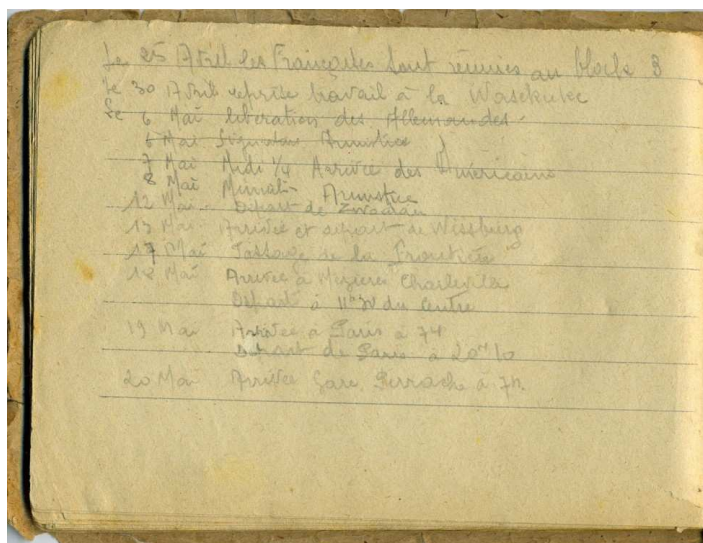 Le 25 Avril les Françaises sont réunies au block 3
Le 30 Avril reprise travail à la
Le 6 Mai libération des Allemandes
6 Mai Armistice
7 Mai Midi 1/4 Arrivée des Américains
8 Mai Minuit Armistice
12 Mai Départ de Zwodau
13 Mai Arrivée et départ de
17 Mai Passage de la Frontière
18 Mai Arrivée à Mézières Charleville
Départ à du Centre
19 Mai Arrivée à Paris à
Départ de Paris à 20H10
20 Mai Arrivée Gare Perrache à 7h